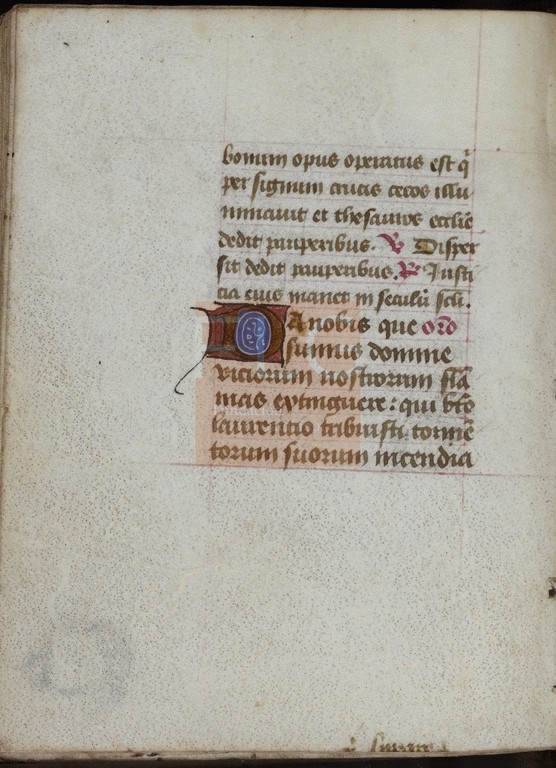 bonum opus operatus est q̄
per signum crucis cecos illu
minauit et thesauros ecclie
dedit pauperibus. V Disper
sit dedit pauperibus. R Justi
cia eius manet in seculū scli.
DA nobis que oro
sumus domine
viciorum nostrorum flā
mas extinguere: qui bto
laurentio tribuisti tormē
torum suorum incendia